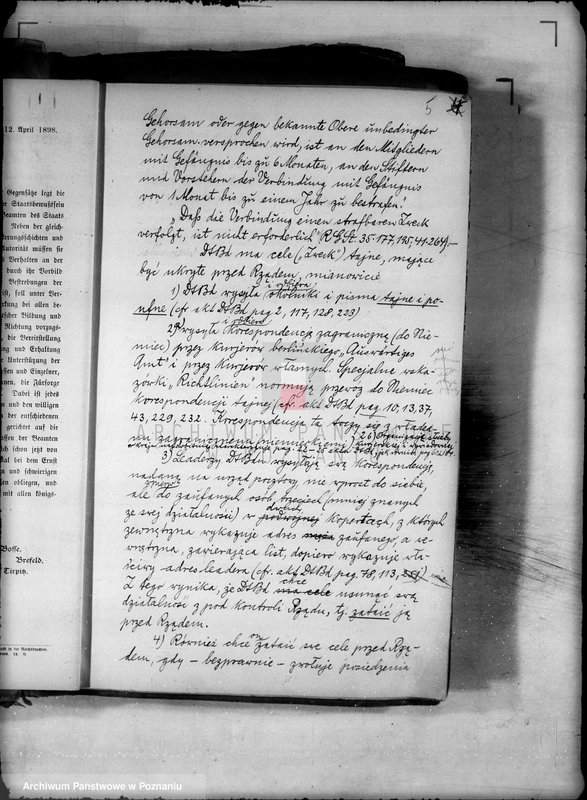 12. April 1898.
Gegensätze legt die
e Staatsbewußtsein
Beamten des Staats
Neben der gleich-
Autorität müssen sie
Verhalten an der
durch ihr Vorbild
Bestrebungen der
ist, soll unter Ver-
Richtung vorzugs-
die Bereitstellung
und Erhaltung
e Unterstützung der
und Einzelner,
die Fürsorge
Dabei ist jedes
und den willigen
der entschiedenen
gerichtet auf die
ffen der Beamten
schon jetzt von
bei dem Ernst
und schwierigen
obliegen, und
mit allen königs-
Bosse.
Brefeld.
Tirpitz.
5
Gehorsam oder gegen bekannte Obere unbedingter
Gehorsam versprochen wird, ist an den Mitgliedern
mit Gefängnis bis zu 6 Monaten, an den Stiftern
und Vorstehern der Verbindung mit Gefängnis
von 1 Monat bis zu einem Jahr zu bestrafen."
"Daß die Verbindung einen strafbaren Zweck
verfolgt, ist nicht erforderlich" R.G.St. 35-177, 195, 41-264.-
DtBd ma cele ("Zweck") tajne, mające
być ukryte przed Rządem, mianowicie
1) DtBd wysyła i odbiera okolniki i pisma tajne i po-
ufne (cfr akt DtBd pag 2, 117, 128, 223)
2) wysyła i odbiera korespondencję zagraniczną (do Nie-
miec) przez kurjerów berlińskiego „Auswärtiges
Amt" i przez kurjerów własnych. Specjalne wska-
zówki „Richtlinien" normują przewóz do Niemiec
korespondencji tajnej (cfr. akt DtBd pag. 10, 13, 37,
43, 229, 232. Korespondencja ta toczy się z władza-
mi zagranicznemi (niemieckiemi)
3) Leaderzy DtBdu wysyłają swą korespondencję,
nadaną na urząd pocztowy, nie wprost do siebie,
ale do zaufanych osób trzecich (mniej znanych
ze swej działalności) w dwóch podwójnej kopertach, z których
zewnętrzna wykazuje adres męża zaufanego, a we-
wnętrzna, zawierająca list, dopiero wykazuje wła-
ściwy adres leadera (cfr. akt DtBd pag. 78, 113,
Z tego wynika, że DtBd chce ma cele usunąć swą
działalność z pod kontroli Rządu, tj. zataić ją
przed Rządem.
4) Również chce zataić swe cele przed Rzą-
dem, gdy - bezprawnie - zwołuje posiedzenia
ARCHIWUM PAŃSTWOWE
Archiwum Państwowe w Poznaniu